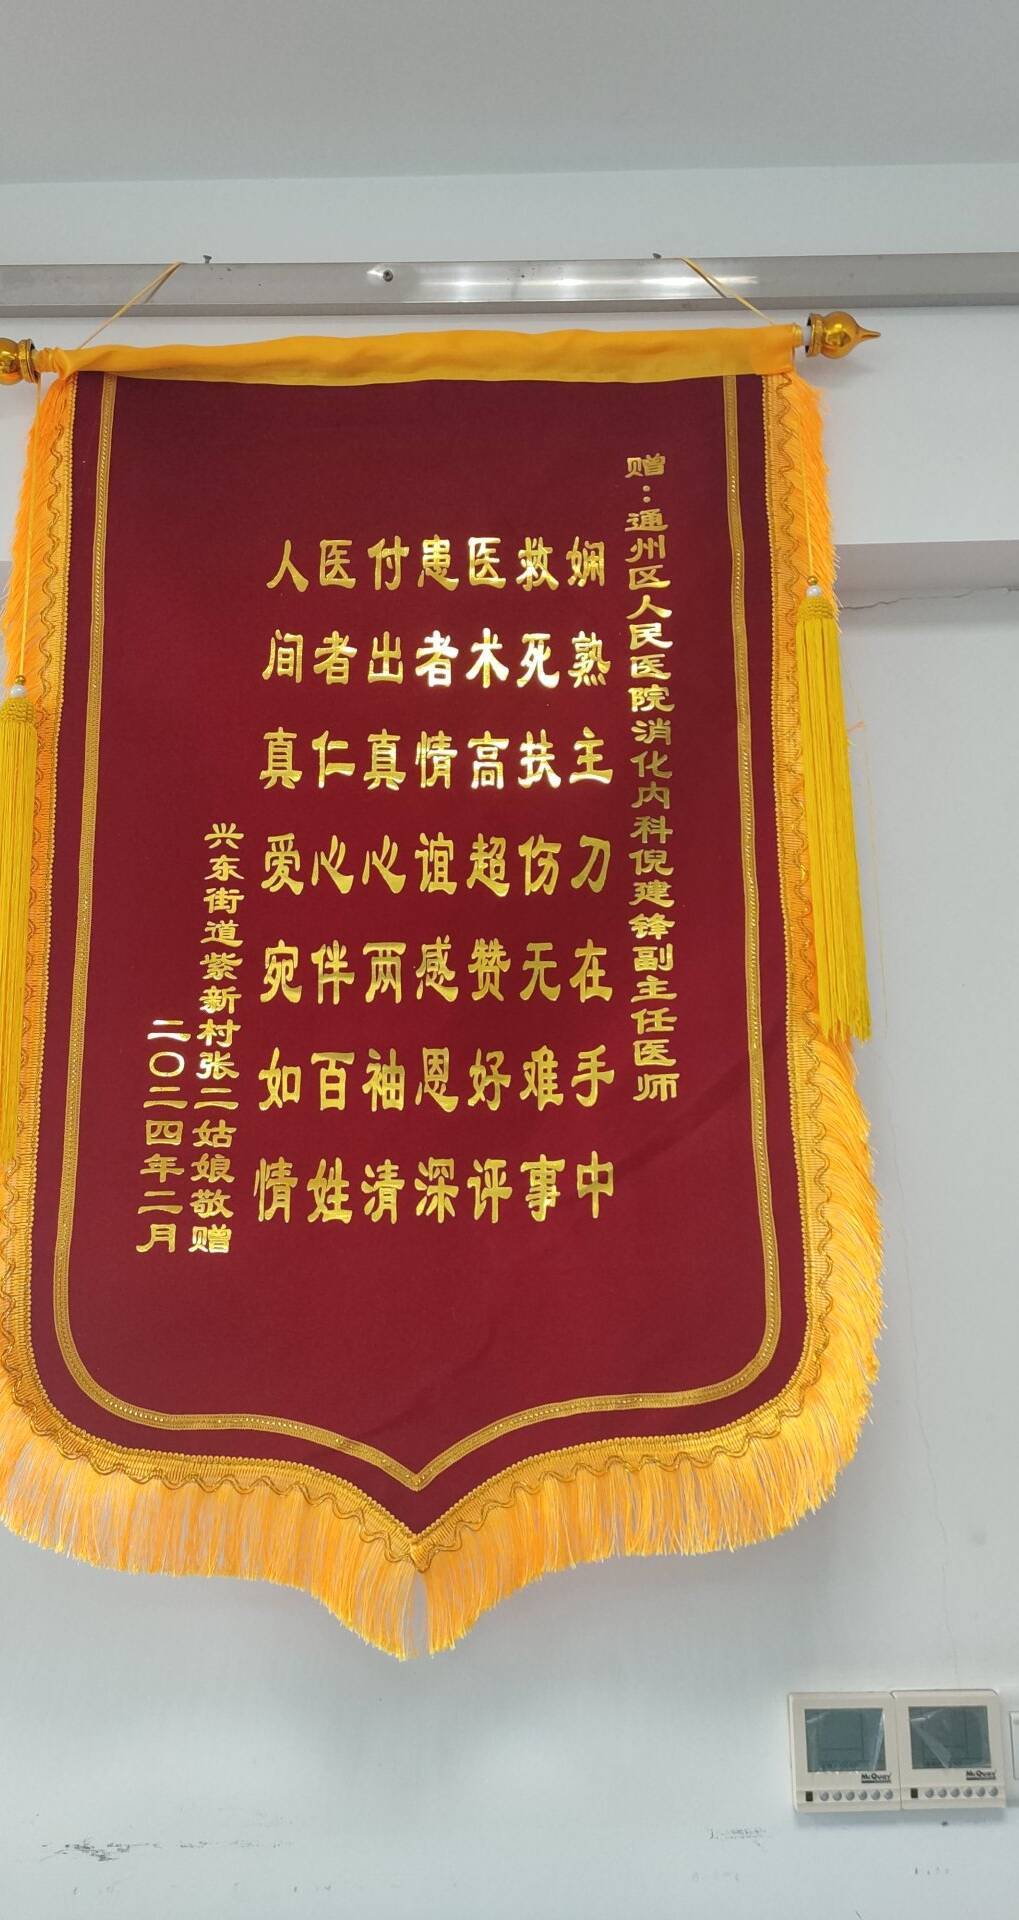 赠：通州区人民医院消化内科倪建锋副主任医师
娴熟主刀在手中
救死扶伤无难事
医术高超赞好评
患者情谊感恩深
付出真心两袖清
医者仁心伴百姓
人间真爱宛如情
兴东街道紫新村张二姑娘敬赠
二〇二四年二月
McQuay
McQuay